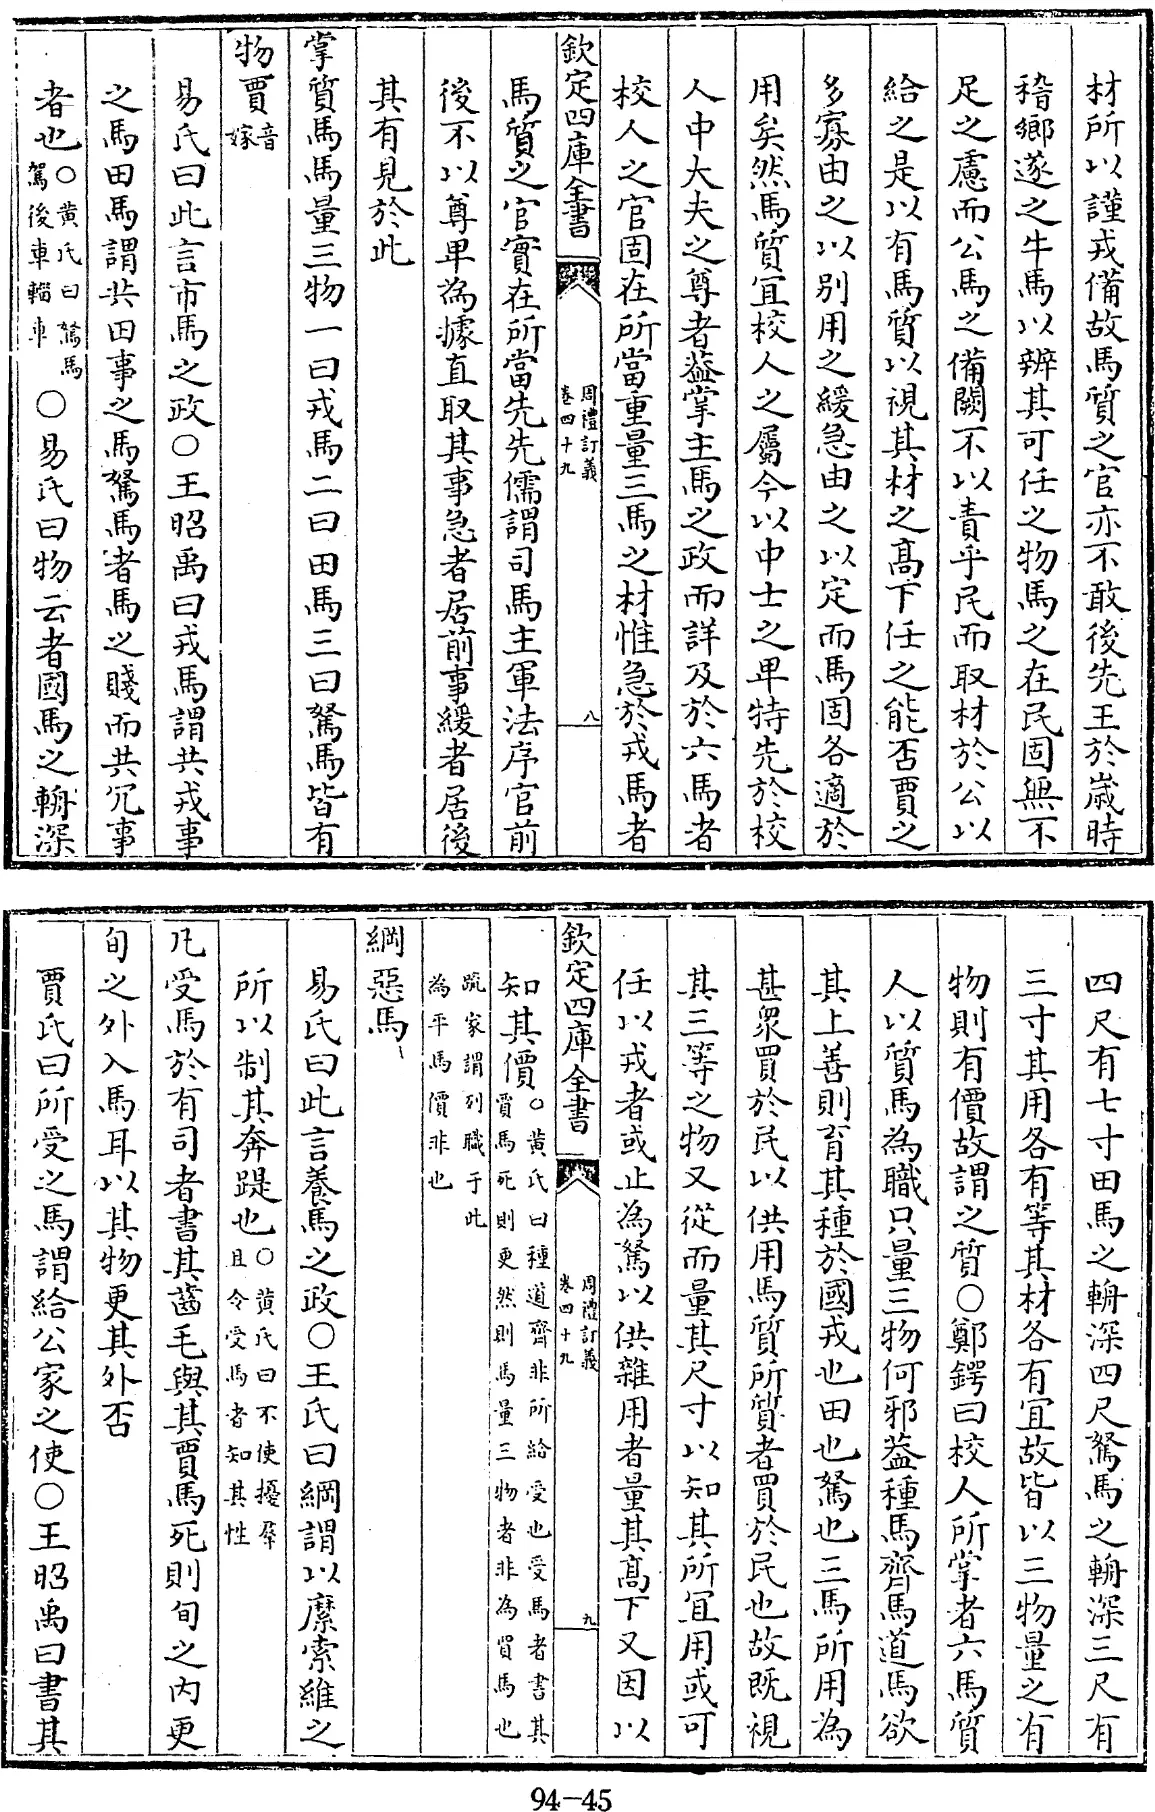 材所以謹戎備故馬質之官亦不敢後先王於歲時
稽鄉遂之牛馬以辨其可任之物馬之在民固無不
足之慮而公馬之備闕不以責乎民而取材於公以
給之是以有馬質以視其材之高下任之能否賈之
多寡由之以別用之緩急由之以定而馬固各適於
用矣然馬質宜校人之屬今以中士之卑特先於校
人中大夫之尊者葢掌主馬之政而詳及於六馬者
校人之官固在所當重量三馬之材惟急於戎馬者
欽定四庫全書
周禮訂義
卷四十九
八
馬質之官實在所當先先儒謂司馬主軍法序官前
後不以尊卑為據直取其事急者居前事緩者居後
其有見於此
掌質馬馬量三物一曰戎馬二曰田馬三曰駑馬皆有
物賈音嫁
易氏曰此言市馬之政〇王昭禹曰戎馬謂共戎事
之馬田馬謂共田事之馬駑馬者馬之賤而共冗事
者也〇黄氏曰駑馬駕後車輜車〇易氏曰物云者國馬之輈深
四尺有七寸田馬之輈深四尺駑馬之輈深三尺有
三寸其用各有等其材各有宜故皆以三物量之有
物則有價故謂之質〇鄭鍔曰校人所掌者六馬質
人以質馬為職只量三物何邪葢種馬齊馬道馬欲
其上善則育其種於國戎也田也駑也三馬所用為
甚衆買於民以供用馬質所質者買於民也故既視
其三等之物又從而量其尺寸以知其所宜用或可
任以戎者或止為駑以供雜用者量其高下又因以
欽定四庫全書
周禮訂義
卷四十九
九
知其價〇黄氏曰種道齊非所給受也受馬者書其
賈馬死則更然則馬量三物者非為買馬也
疏家謂列職于此
為平馬價非也
綱惡馬
易氏曰此言養馬之政〇王氏曰綱謂以縻索維之
所以制其奔踶也〇黄氏曰不使擾羣且令受馬者知其性
凡受馬於有司者書其齒毛與其賈馬死則旬之内更
旬之外入馬耳以其物更其外否
賈氏曰所受之馬謂給公家之使〇王昭禹曰書其
94-45